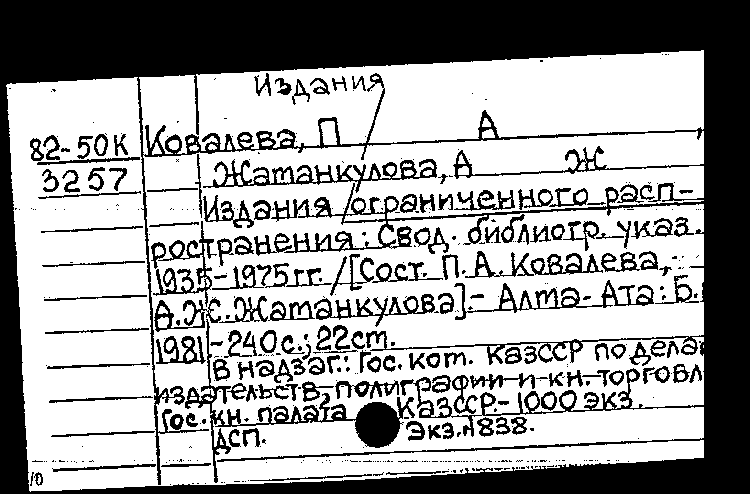 Издания
82-50К Ковалева, П А ,
3257 Жатанкулова, А Ж
Издания ограниченного расп-
ространения: Свод. библиогр. указ.
1935-1975 гг. / [Сост. П. А. Ковалева,
А. Ж. Жатанкулова]. - Алма-Ата: Б.
1981 - 240 с.; 22 см.
В надзаг.: Гос. ком. КазССР по делам
издательств, полиграфии и кн. торговл
Гос. кн. палата КазССР. - 1000 экз.
ДСП. Экз. № 838.
10